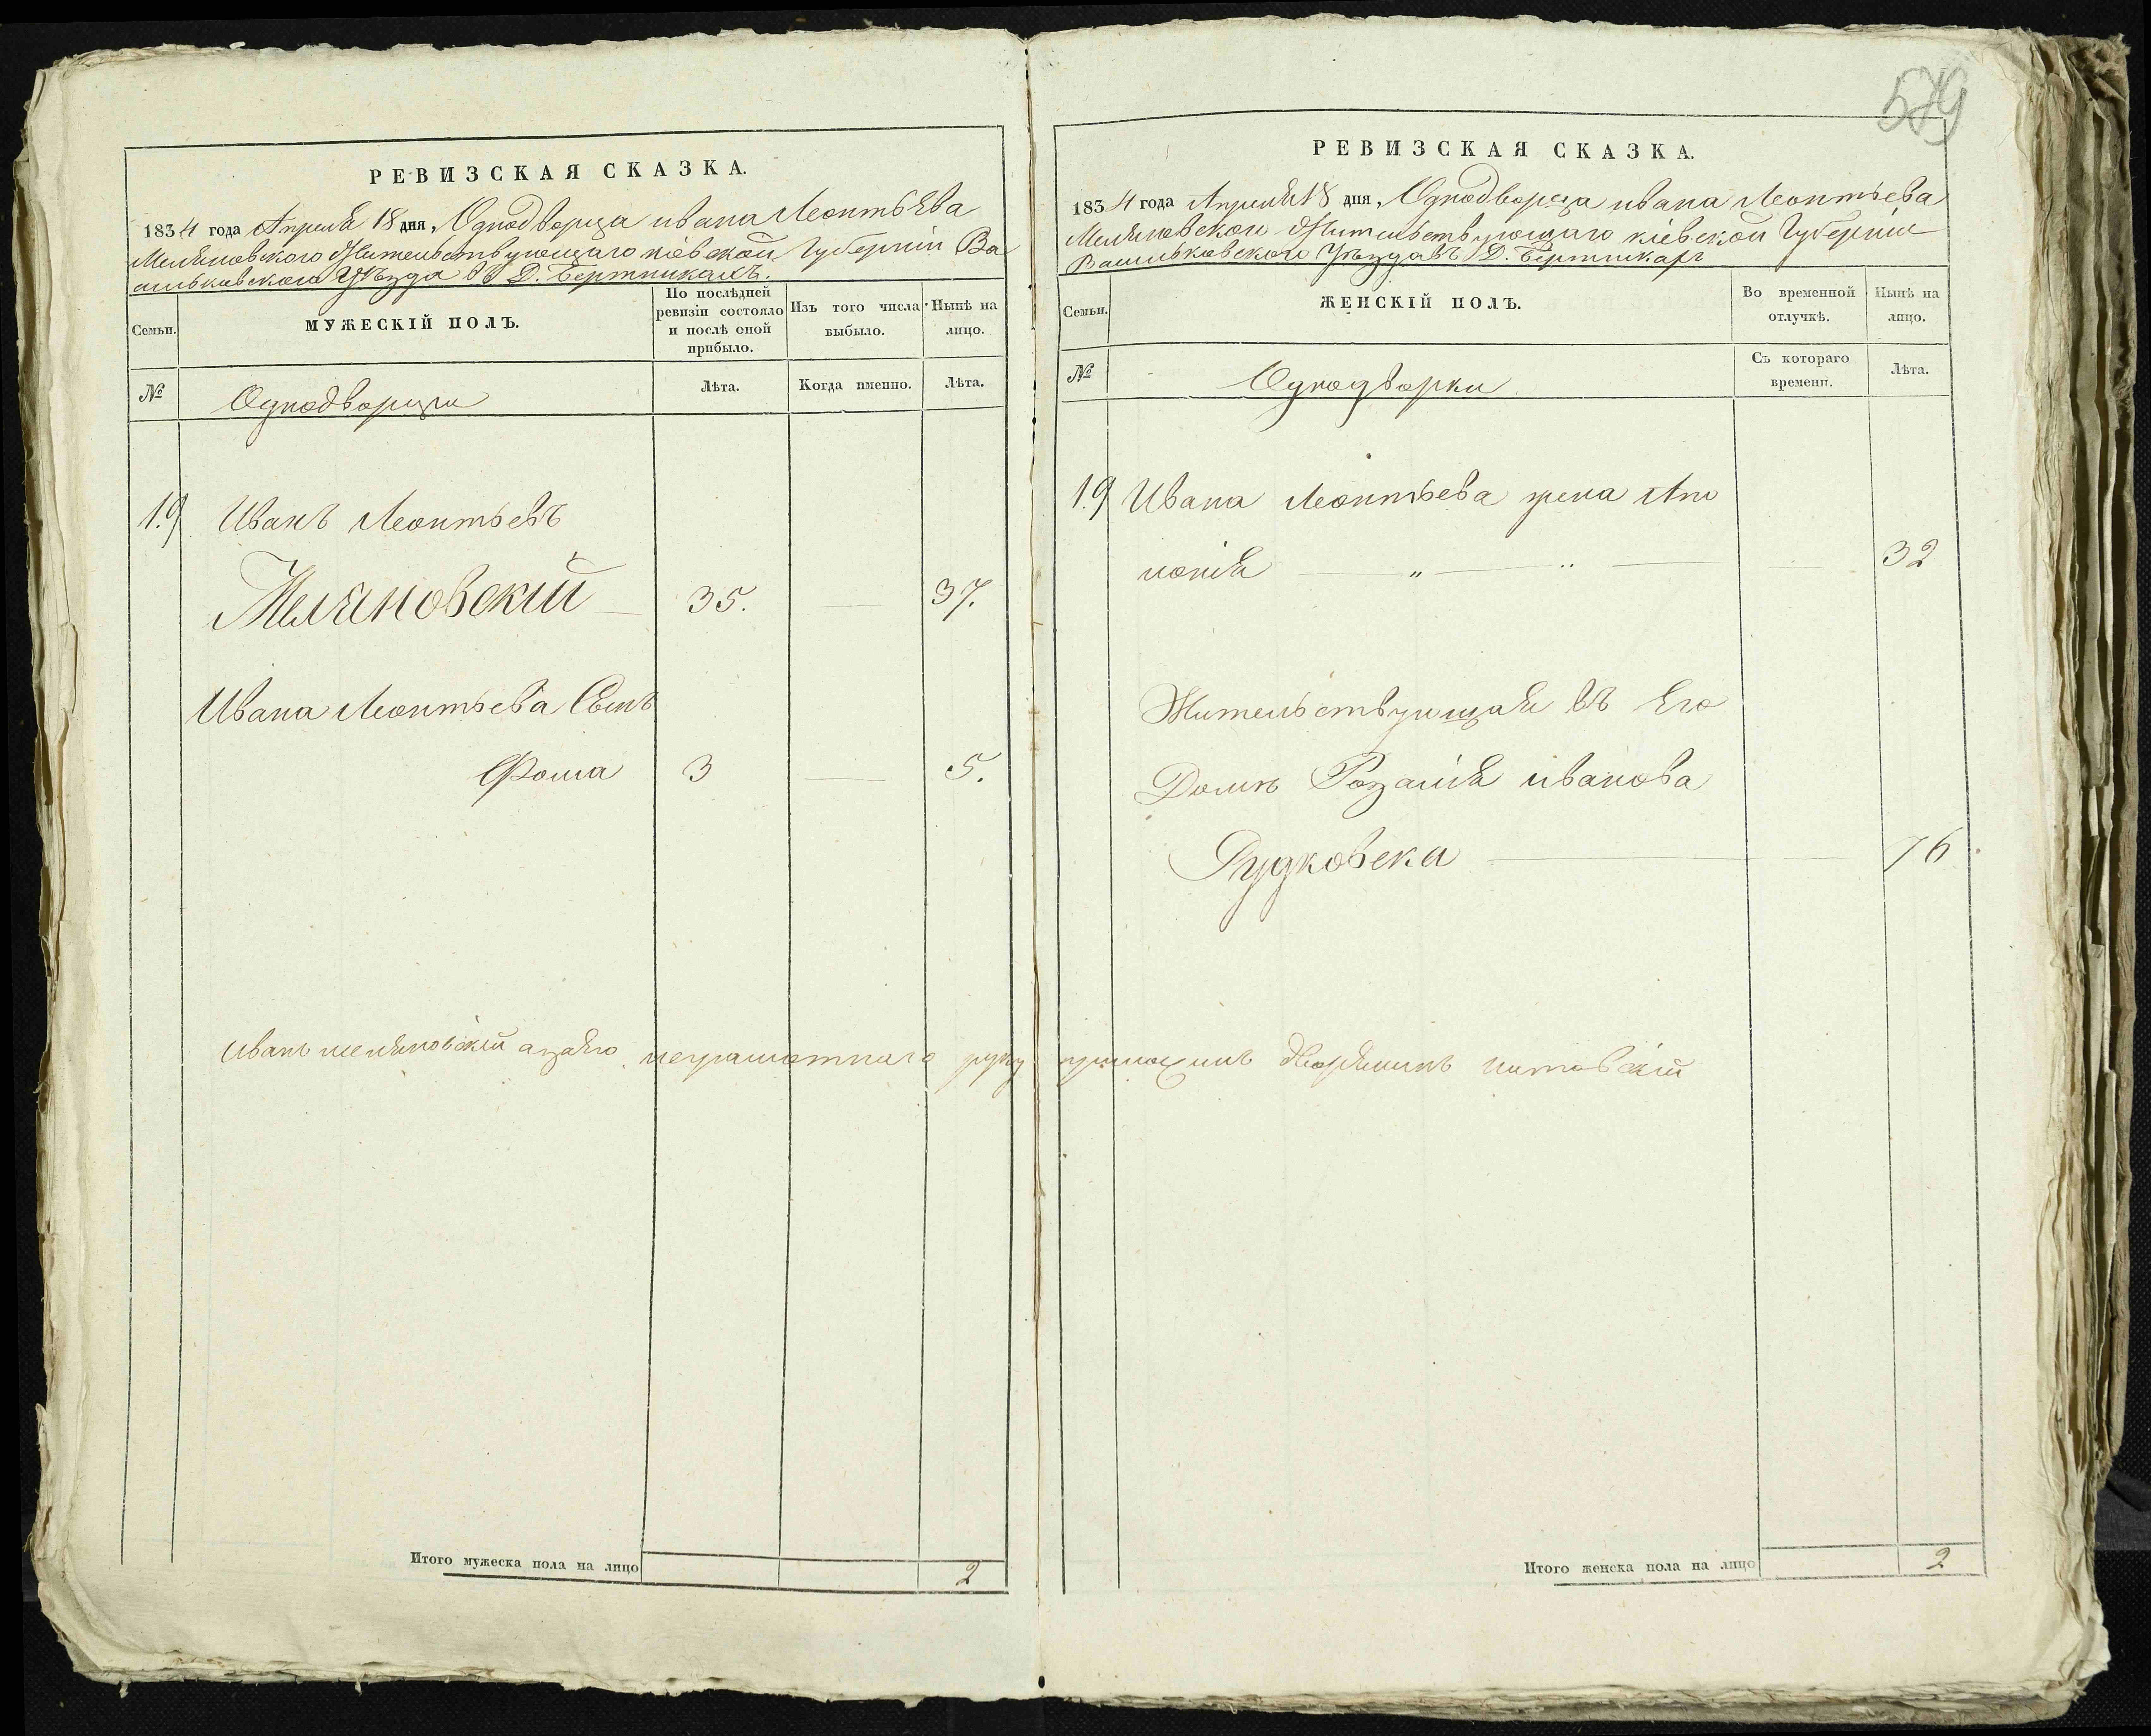 579
РЕВИЗСКАЯ СКАЗКА.
1834 года Апреля 18 дня, Однодворца ивана Леонтьева
Меляновского Жительствующаго кіевской Губерніи Ва
сильковскаго Уѣзда въ Д. Бертникахъ.
Семьи.
МУЖЕСКІЙ ПОЛЪ.
По послѣдней ревизіи состояло и послѣ оной прибыло.
Изъ того числа выбыло.
Нынѣ на лицо.
№
Однодворцы
Лѣта.
Когда именно.
Лѣта.
19 Иванъ Леонтьевъ
Меляновскій 35. 37.
Ивана Леонтьева Сынъ
Фома 3 5.
Иванъ меляновскій аза его неграмотнаго руку приложилъ дворянинъ
Итого мужеска пола на лицо 2
РЕВИЗСКАЯ СКАЗКА.
1834 года Апреля 18 дня, Однодворца ивана Леонтьева
Жительствующаго кіевской Губерніи
Васильковского Уѣзда въ Д.
Семьи.
ЖЕНСКІЙ ПОЛЪ.
Во временной отлучкѣ.
Нынѣ на лицо.
№
Однодворки
Съ котораго времени.
Лѣта.
19 Ивана Леонтьева жена Апо
лонія 32
Жительствующая въ Его
Домѣ Розалія иванова
Рудковска 76
Итого женска пола на лицо 2